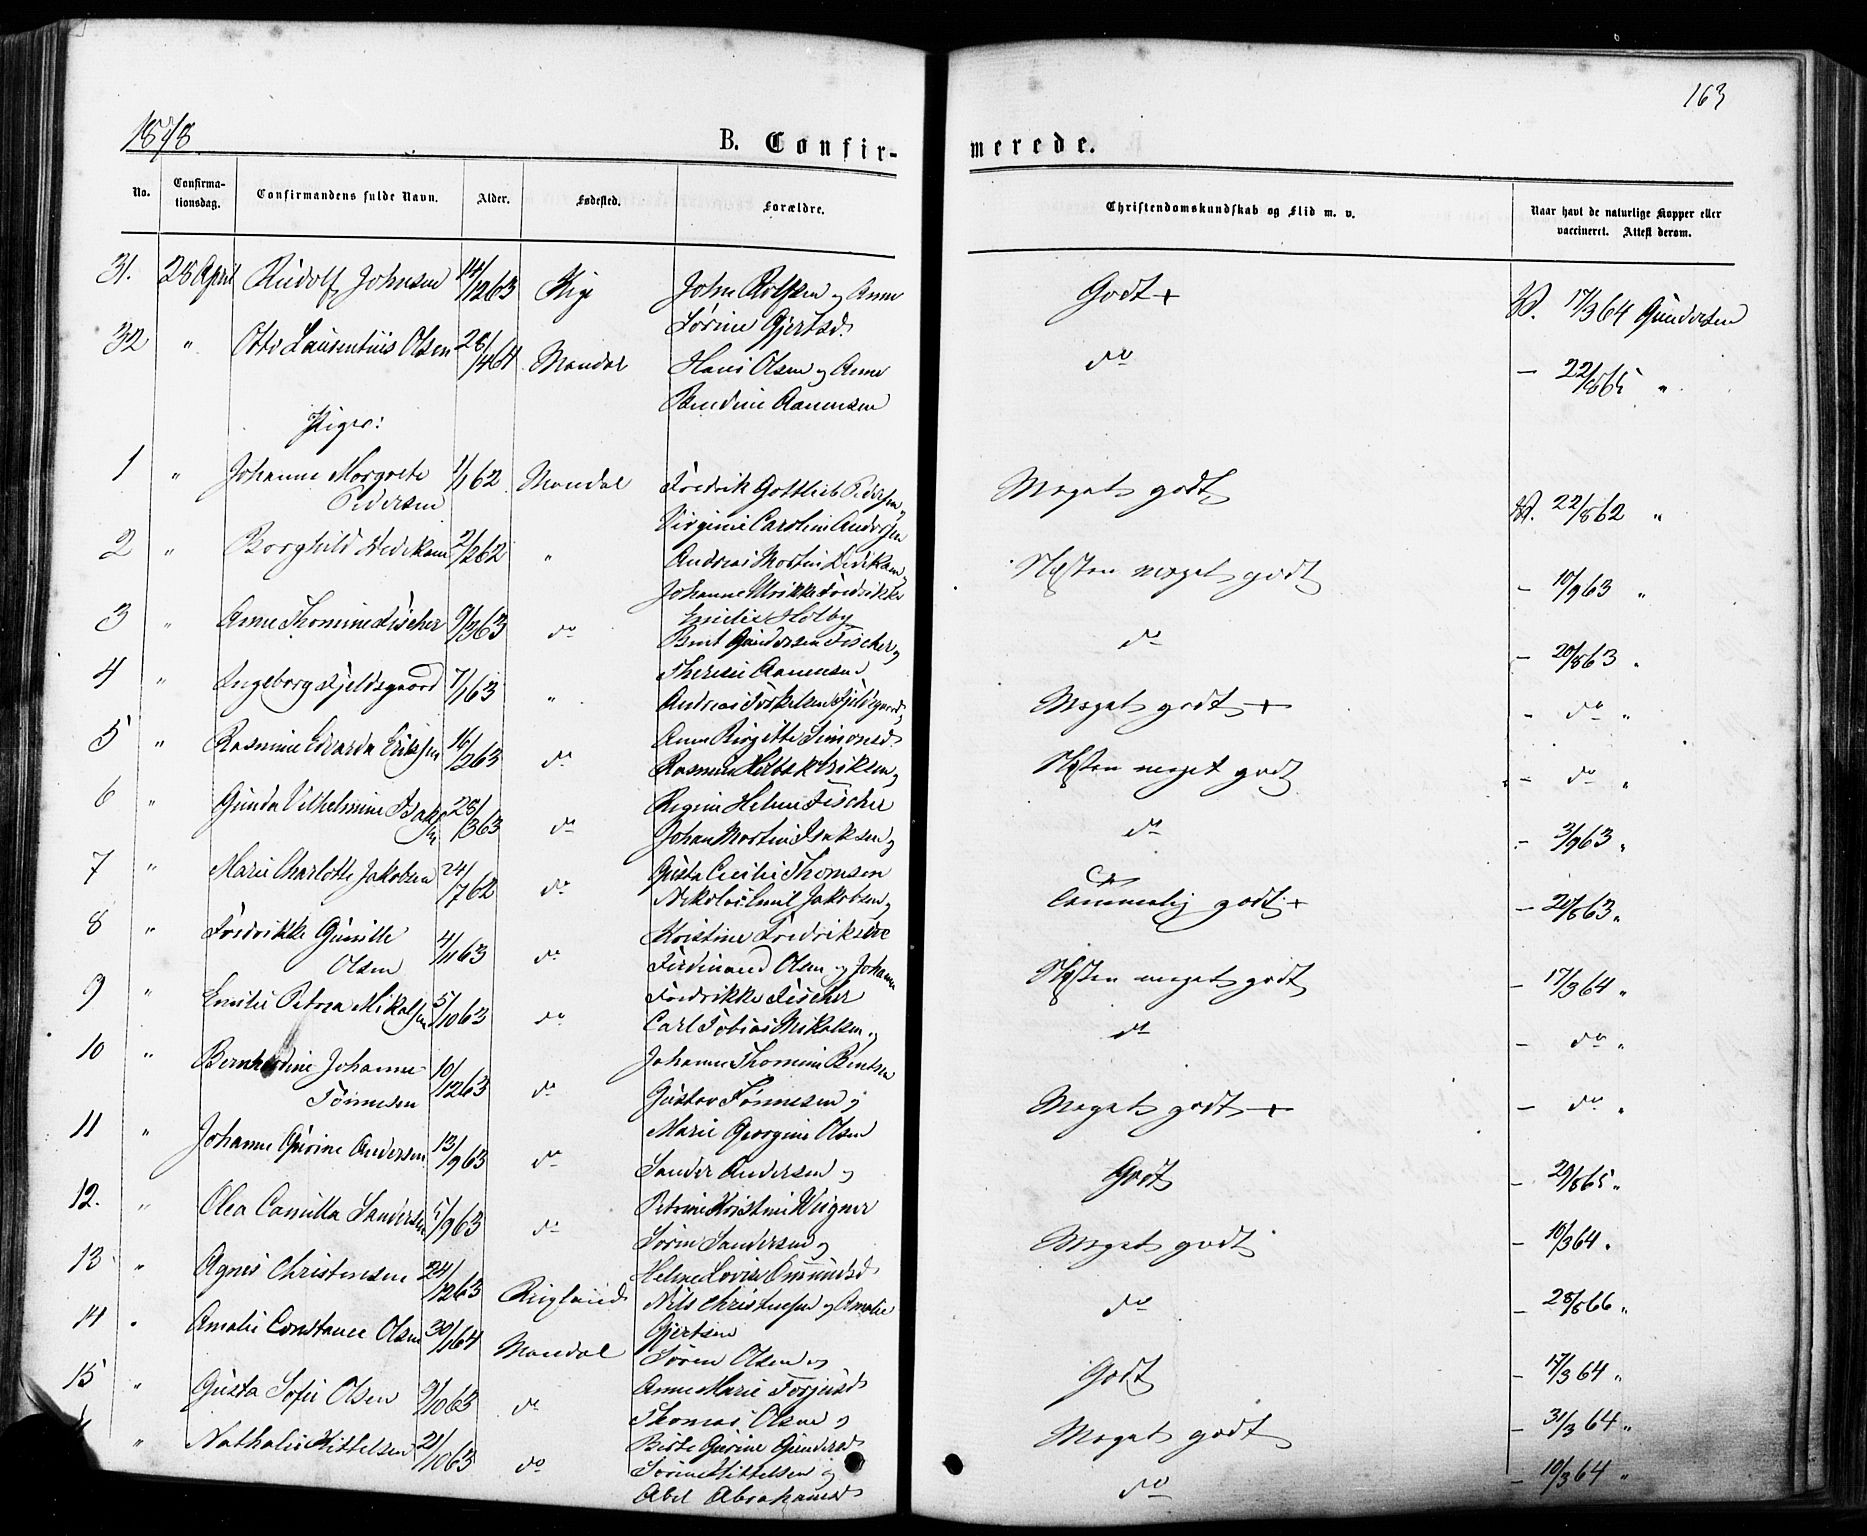 163
1878
B. Confir-
merede.
No.
Confirma-
tionsdag.
Confirmandens fulde Navn.
Alder.
Fødested.
Forældre.
Christendomskundskab og Flid m. v.
Naar havt de naturlige Kopper eller
vaccineret. Attest derom.
31. 28 April Rudolf Johnsen 14/12 63 John Rolfsen og Anne Godt + V. 17/3 64 Gundersen
Sørine Gjertsd.
32 " Otto Laurentius Olsen 28/1 64 Mandal Hans Olsen og Anne do - 22/8 65 "
Bendine Aanensen
Piger:
1 " Johanne Margrete 1/1 62 Mandal Fredrik Gottlieb Pedersen Meget godt V. 22/8 62 "
Pedersen Virginie Caroline Andersen
2 " Borghild 2/2 62 " Andreas Martin Næsten meget godt - 10/9 63 "
Johanne Ulrikke Fredrikke
Emilie Holby
3 " Anne Thomine Fischer 9/3 63 do Bernt Gundersen Fischer og do - 20/8 63 "
Therese Aanensen
4 " Ingeborg Fjeldsgaard 7/1 63 " Andreas Fjeldsgaard Meget godt + - do "
Anne Birgitte Simonsd.
5 " Rasmine Edvarda Eriksen 16/2 63 do Rasmus Eriksen og Næsten meget godt - do "
Regine Helene Fischer
6 " Gunda Vilhelmine Isaksen 28/3 63 do Johan Martin Isaksen og do - 3/9 63 "
Gusta Cecilie Thomsen
7 " Marie Charlotte Jakobsen 24/7 62 do Nikolai Emil Jakobsen og Temmelig godt + - 20/8 63 "
Kristine Fredriksen
8 " Fredrikke Gunille 4/11 63 do Ferdinand Olsen og Johanne Næsten meget godt - 17/3 64 "
Olsen Fredrikke Fischer
9 " Emilie Petrea Mikalsen 5/10 63 do Carl Tobias Mikalsen og do - do "
Johanne Thomine Bentsen
10 " Bernhardine Johanne 10/12 63 do Gustav Tønnesen og Meget godt + - do "
Tønnesen Marie Georgine Olsen
11 " Johanne Gurine Andersen 13/9 63 do Sander Andersen og Godt - 29/8 65 "
Petrine Kristine Wigner
12. " Olea Camilla Sandersen 5/9 63 do Søren Sandersen og Meget godt - 10/3 64 "
Helene Lovise
13 " Agnes Christensen 24/12 63 Nils Christensen og Amalie do - 28/8 66 "
Gjertsen
14 " Amalie Constance Olsen 30/1 64 Mandal Søren Olsen og Godt - 17/3 64 "
Anne Marie Torjusd.
15 " Gusta Sofie Olsen 9/10 63 do Thomas Olsen og Meget godt - 31/3 64 "
Birte Gurine Gundersd.
" Nathalie Kittelsen 21/10 63 do Søren Kittelsen og do - 10/3 64 "
Abel Abrahamsd.